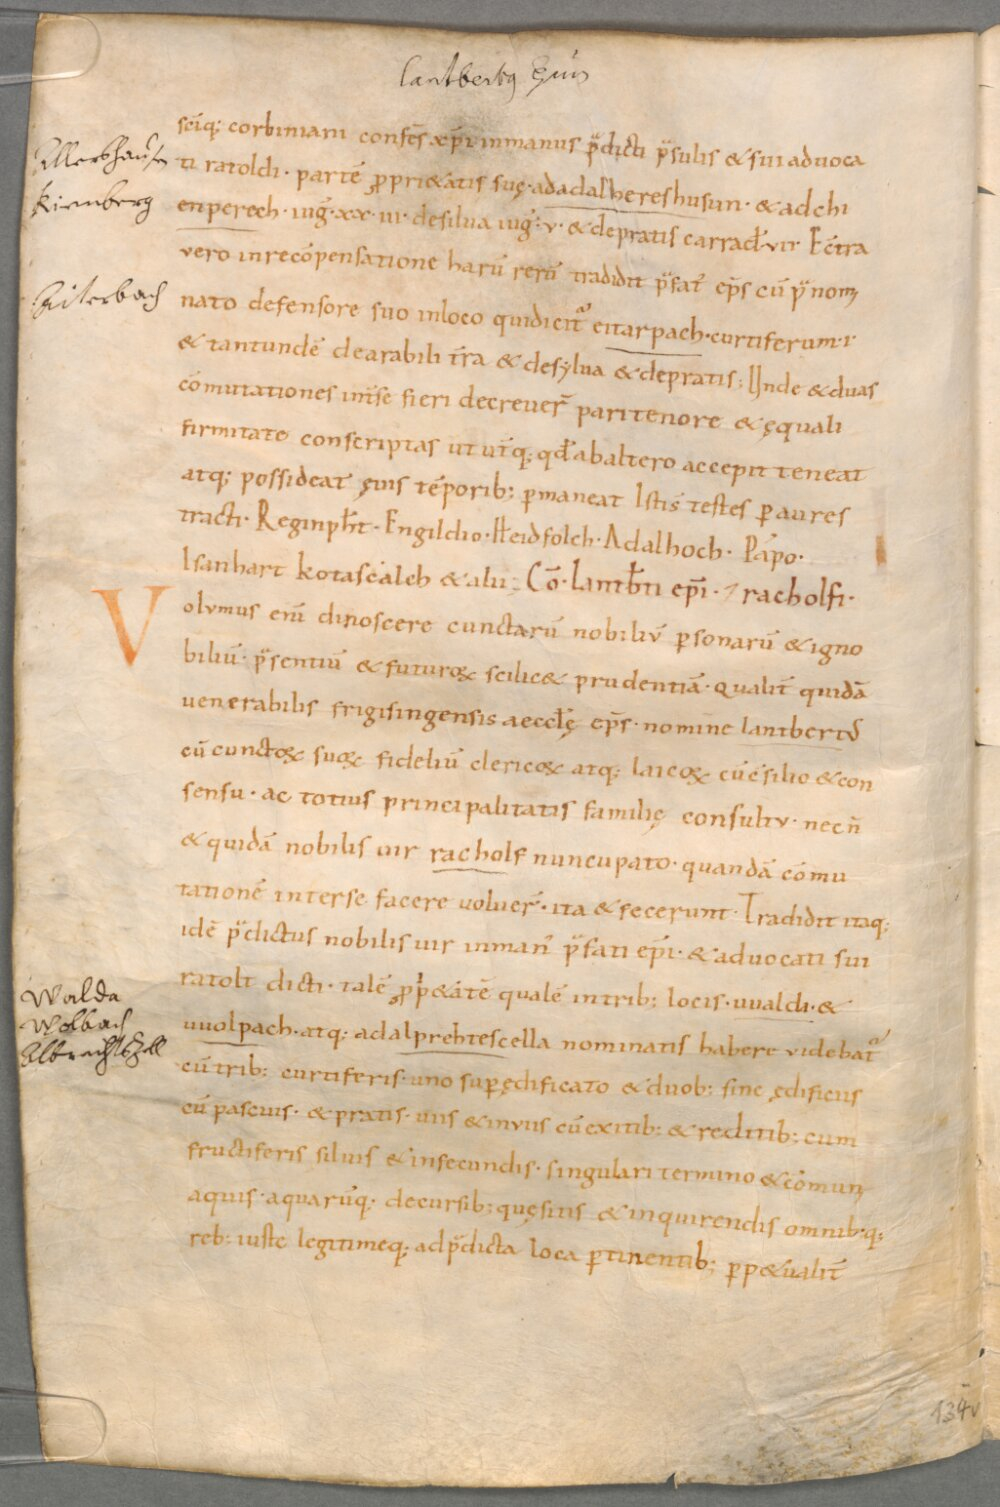 lantbertq
scīq; corbiniani confeſ̄ xp̄i inmanuſ p̄dicti p̄ſuliſ & ſui aduoca
Allerßhauſen
ti ratoldi · partē ꝓpri&atiſ ſuę · adadalhereshuſun · & adchi
Kirmberg
enperech · iuḡ · xx · iii · deſilua iuḡ · v · & depratiſ carrad̄ · vii · Econtra
vero inrecōpenſatione harū rerū tradidit p̄fat᷒ ep̄ſ cū p̄nomi
Aiterbach
nato defenſore ſuo inloco quidicit᷒ eitarpach · curtiferum · i ·
& tantundē dearabili t̄ra & deſylua & depratiſ; Unde & duaſ
cōmutationeſ int̄ſe fieri decreuer̄ paritenore & ęquali
firmitate conſcriptaſ ut ut̄q; qd̄ abaltero accepit teneat
atq; poſſideat ęuiſ tēporib; p̄maneat Iſti ſ̄ teſteſ p̄ aureſ
tracti · Reginpħt · Engildio · Heidfolch · Adalhoch · Papo ·
Iſanhart kotaſcalch & alii; Cō · Lantb̄ti ep̄i · ⁊ racholfi ·
Volumuſ eni dinoſcere cunctarū nobiliū perſonarū & igno
biliū · p̄ſentiū & futuroꝝ ſcilic& prudentiā · qualit̄ quidā
uenerabiliſ frigiſingenſiſ aeccłę ep̄ſ · nomine lantbert᷒
cū cunctoꝝ ſuoꝝ fideliū clericoꝝ atq; laicoꝝ cū cſilio & con
ſenſu · ac totiuſ principalitatiſ familię conſultu · necn̄
& quidā nobiliſ uir racholf nuncupato · quandā cōmu
tationē interſe facere uoluer̄ · ita & fecerunt · Tradidit itaq;
idē p̄dictuſ nobiliſ uir inman᷒ p̄fati ep̄i · & aduocati ſui
ratolt dicti · talē ꝓp&atē qualē intrib; lociſ · uualdi · &
Walda
Wolbach
uuolpach · atq; adalprehteſcella nominatiſ habere videbat᷒
Albrachtszell
cū trib; curtiferiſ · uno ſup̄ędificato & duob; ſine ędificiiſ
cū paſcuiſ · & pratiſ · uiiſ & inuiiſ cū exitib; & reditib; cum
fructiferiſ ſiluiſ & infecundiſ · ſingulari termino & cōmuni
aquiſ · aquarūq; decurſib; quęſitiſ & inquirendiſ omnib; q;
reb; iuſte legitimeq; adp̄dicta loca p̄tinentib; p̄p&ualit̄
134v